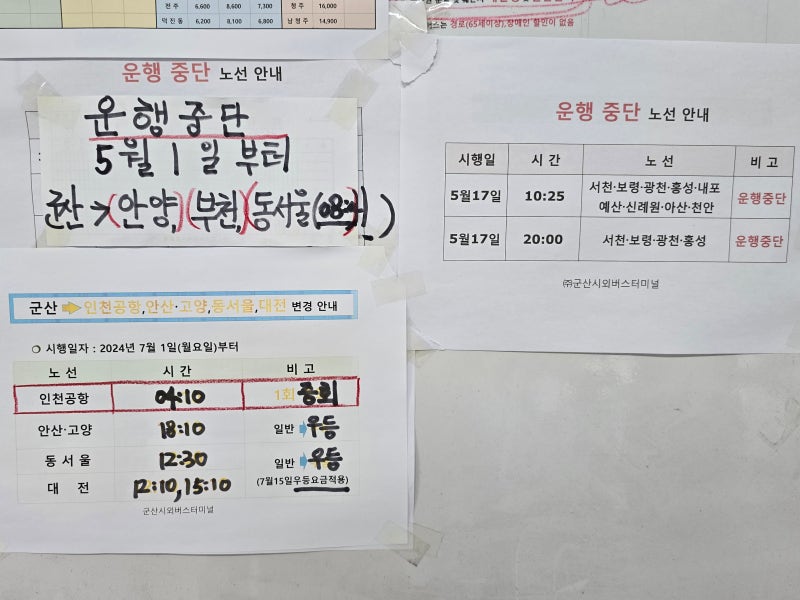 전 주 6,600 8,600 7,300 청 주 16,000
덕진동 6,200 8,100 6,800 남청주 14,900
버스는 경로(65세이상),장애인 할인이 없음
운행 중단 노선 안내
운행중단
5월 1일 부터
군산 > (안양,) (부천,) (동서울
운행 중단 노선 안내
시행일 시 간 노 선 비 고
5월17일 10:25 서천·보령·광천·홍성·내포
예산·신례원·아산·천안 운행중단
5월17일 20:00 서천·보령·광천·홍성 운행중단
㈜군산시외버스터미널
군산 ➡ 인천공항,안산·고양,동서울,대전 변경 안내
❍ 시행일자 : 2024년 7월 1일(월요일)부터
노 선 시 간 비 고
인천공항 04:10 1회 증회
안산·고양 18:10 일반 ➡ 우등
동 서 울 12:30 일반 ➡ 우등
대 전 12:10, 15:10 (7월15일우등요금적용)
군산시외버스터미널